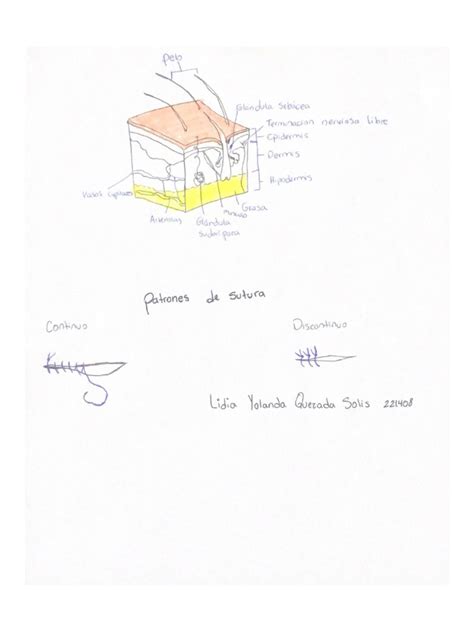 Pelo
Glandula sebácea
Terminacion nerviosa libre
Epidermis
Dermis
Hipodermis
Vasos capilares
Arteriolas
Glándula
sudorípara
Musculo
Grasa
Patrones de sutura
Continuo
Discontinuo
Lidia Yolanda Quezada Solis 221408